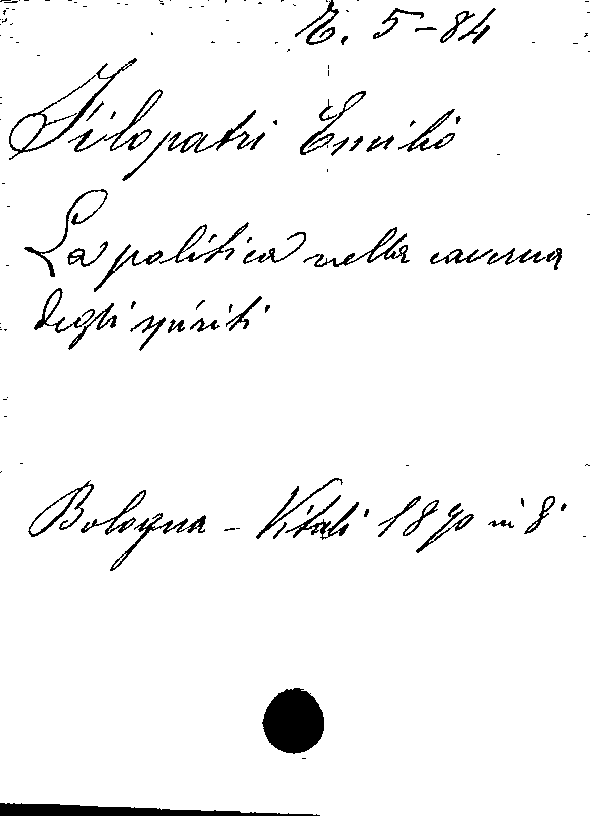 E. 5-84
Filopatri Emilio
La politica nella caverna
degli spiriti
Bologna - Vitali 1870 in 8°